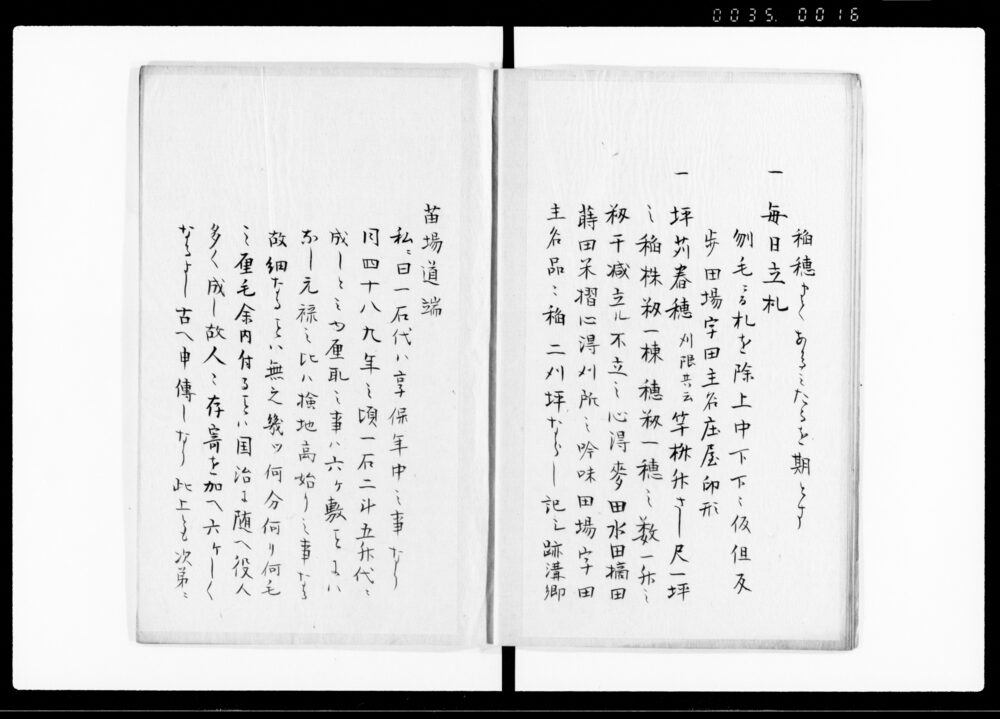 0035 0016
稲穂よくあるゝたるを期とす
一 毎日立札
刎毛ニ而札を除上中下下々仮但反
歩田場字田主名庄屋印形
一 坪苅舂穂 刈限共云 竿桝升さし尺一坪
之稲株籾一棟穂籾一穂之数一升之
籾干減立ル不立之心得麥田水田摘田
蒔田米摺心得刈所之吟味田場字田
主名品ニ稲二刈坪ならし記之跡溝郷
苗場道端
私ニ曰一石代ハ享保年中之事なり
同四十八九年之頃一石二斗五升代ニ
成しと之内厘取之事ハ六ヶ敷事ニハ
なし元禄之比ハ検地高始り之事なる
故細なる事ハ無之幾ツ何分何リ何毛
之厘毛余内付る事ハ国治に随へ役人
多く成し故人々存寄を加へ六ヶしく
なるよし古へ申傳しなり此上とも次第ニ